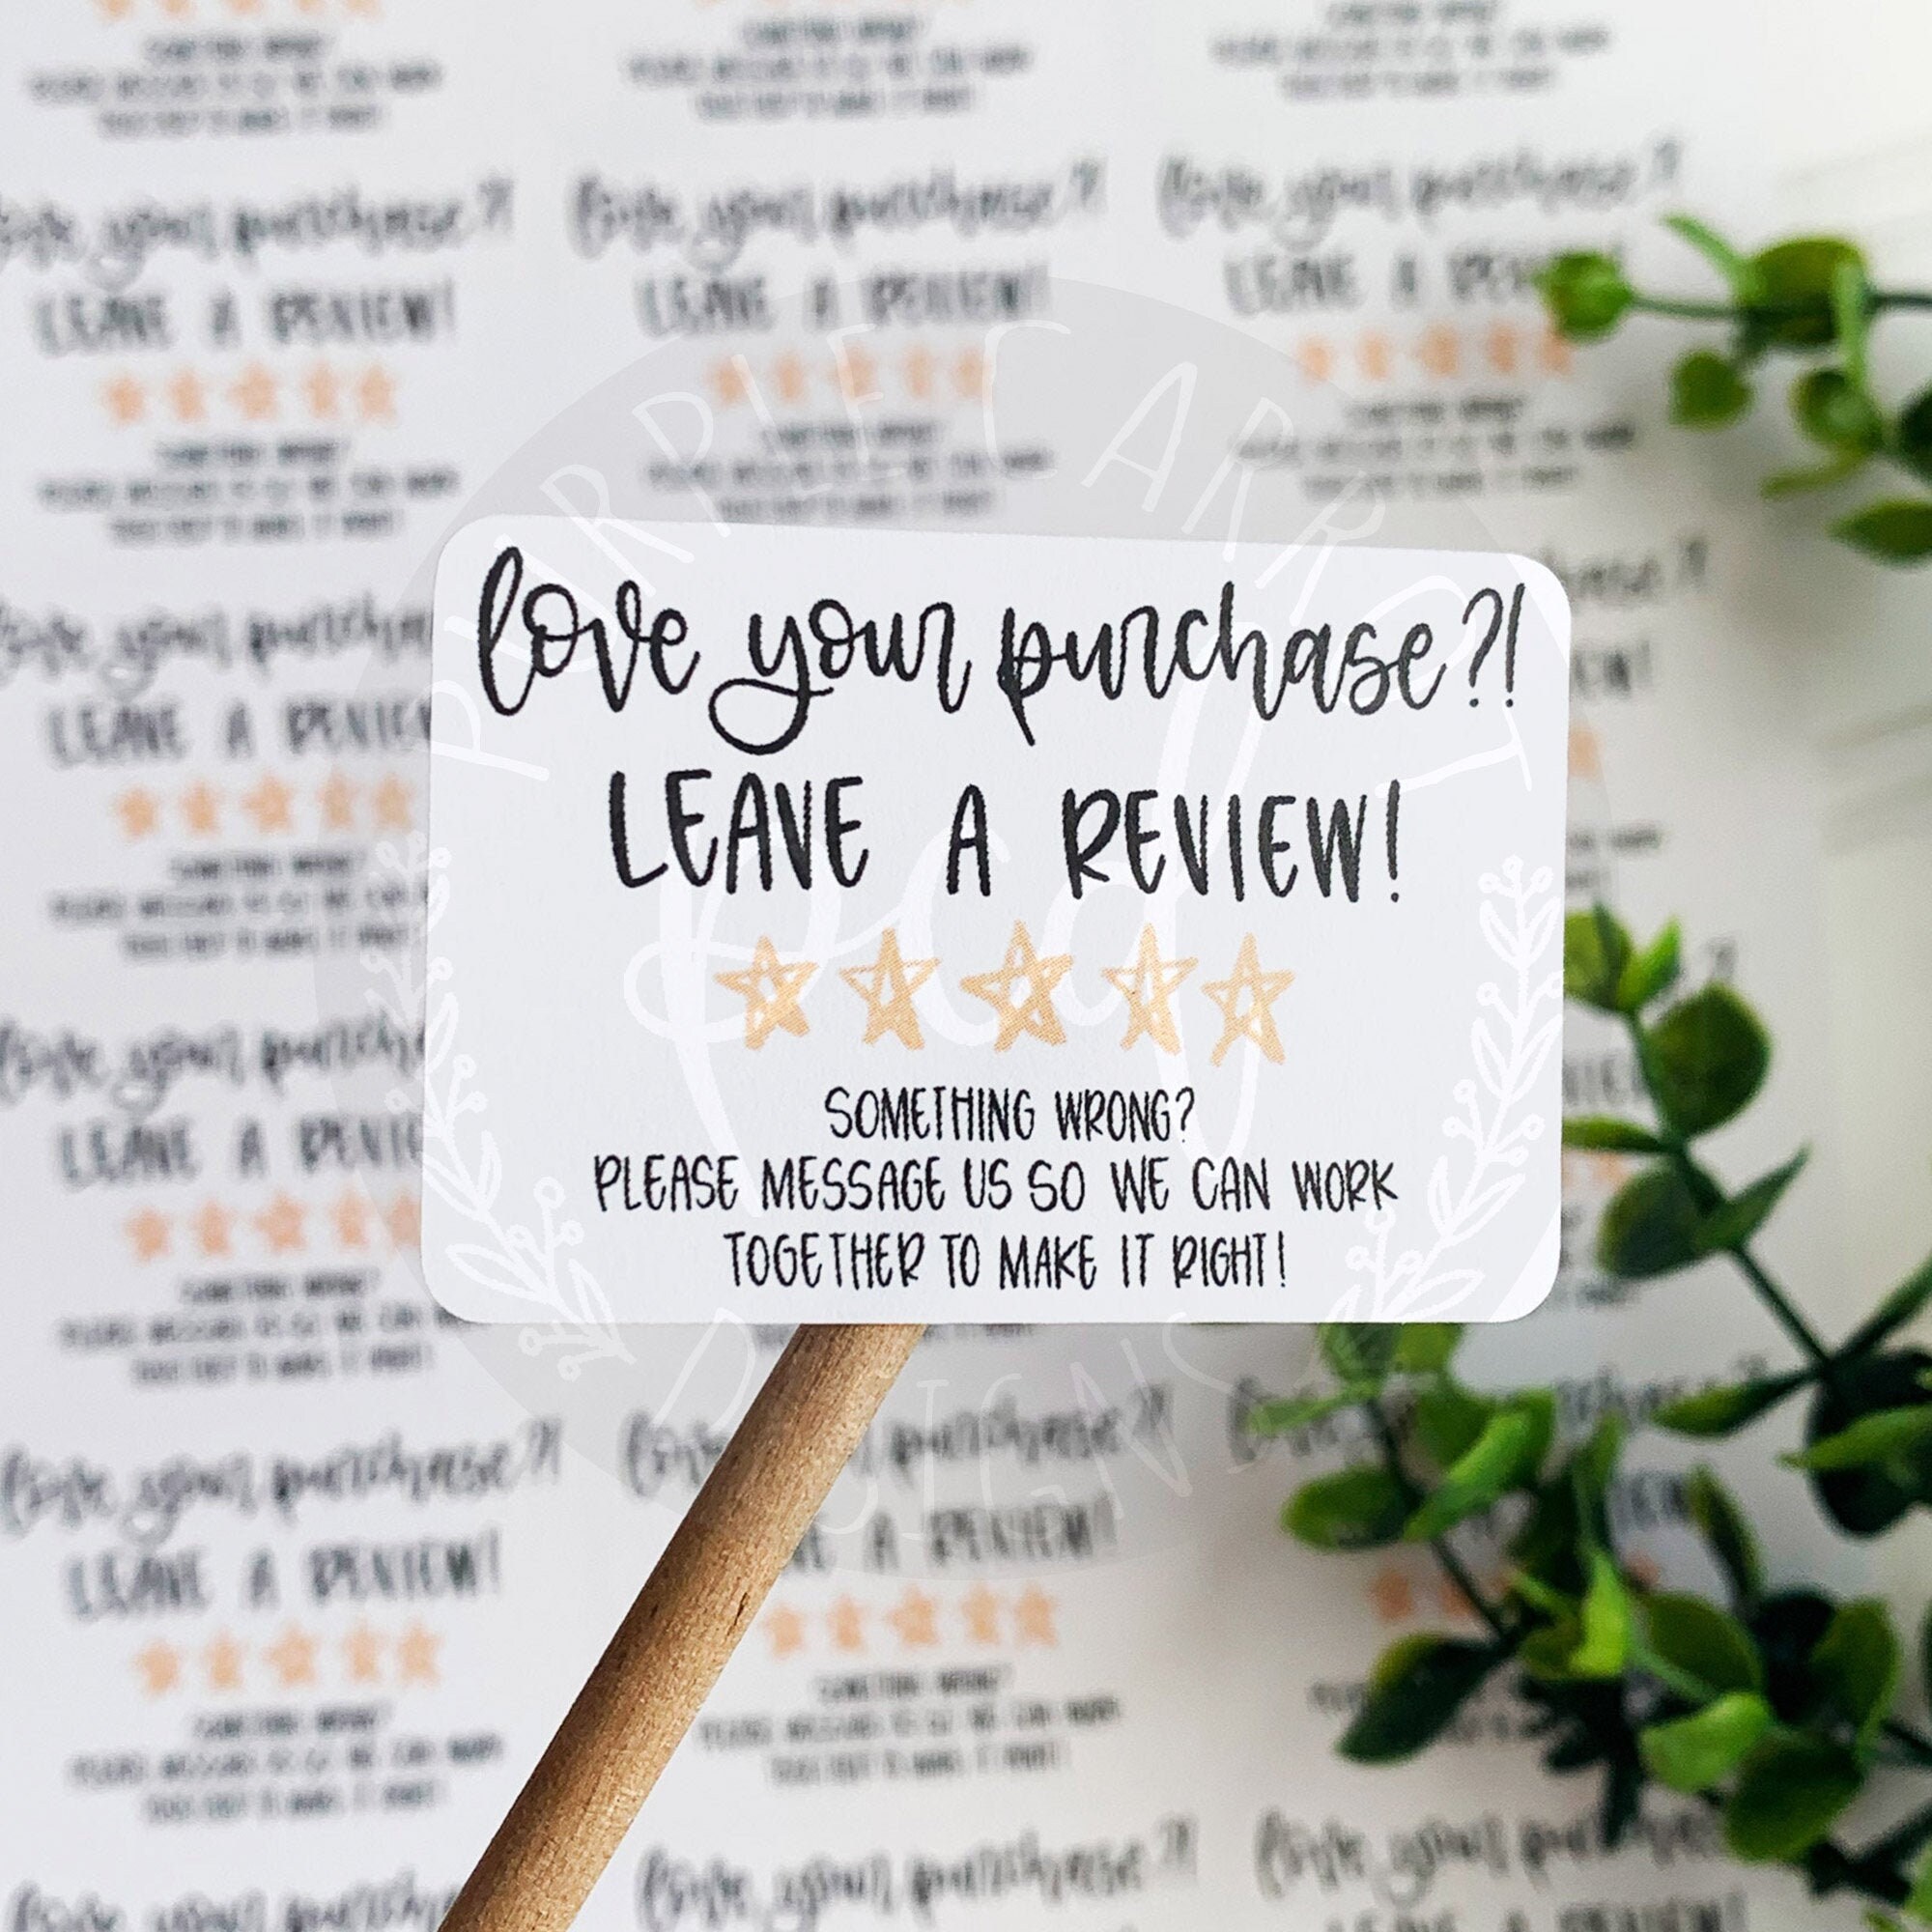 love your purchase?!
LEAVE A REVIEW!
SOMETHING WRONG?
PLEASE MESSAGE US SO WE CAN WORK
TOGETHER TO MAKE IT RIGHT!
PURPLE CARROT
pcd
DESIGNS